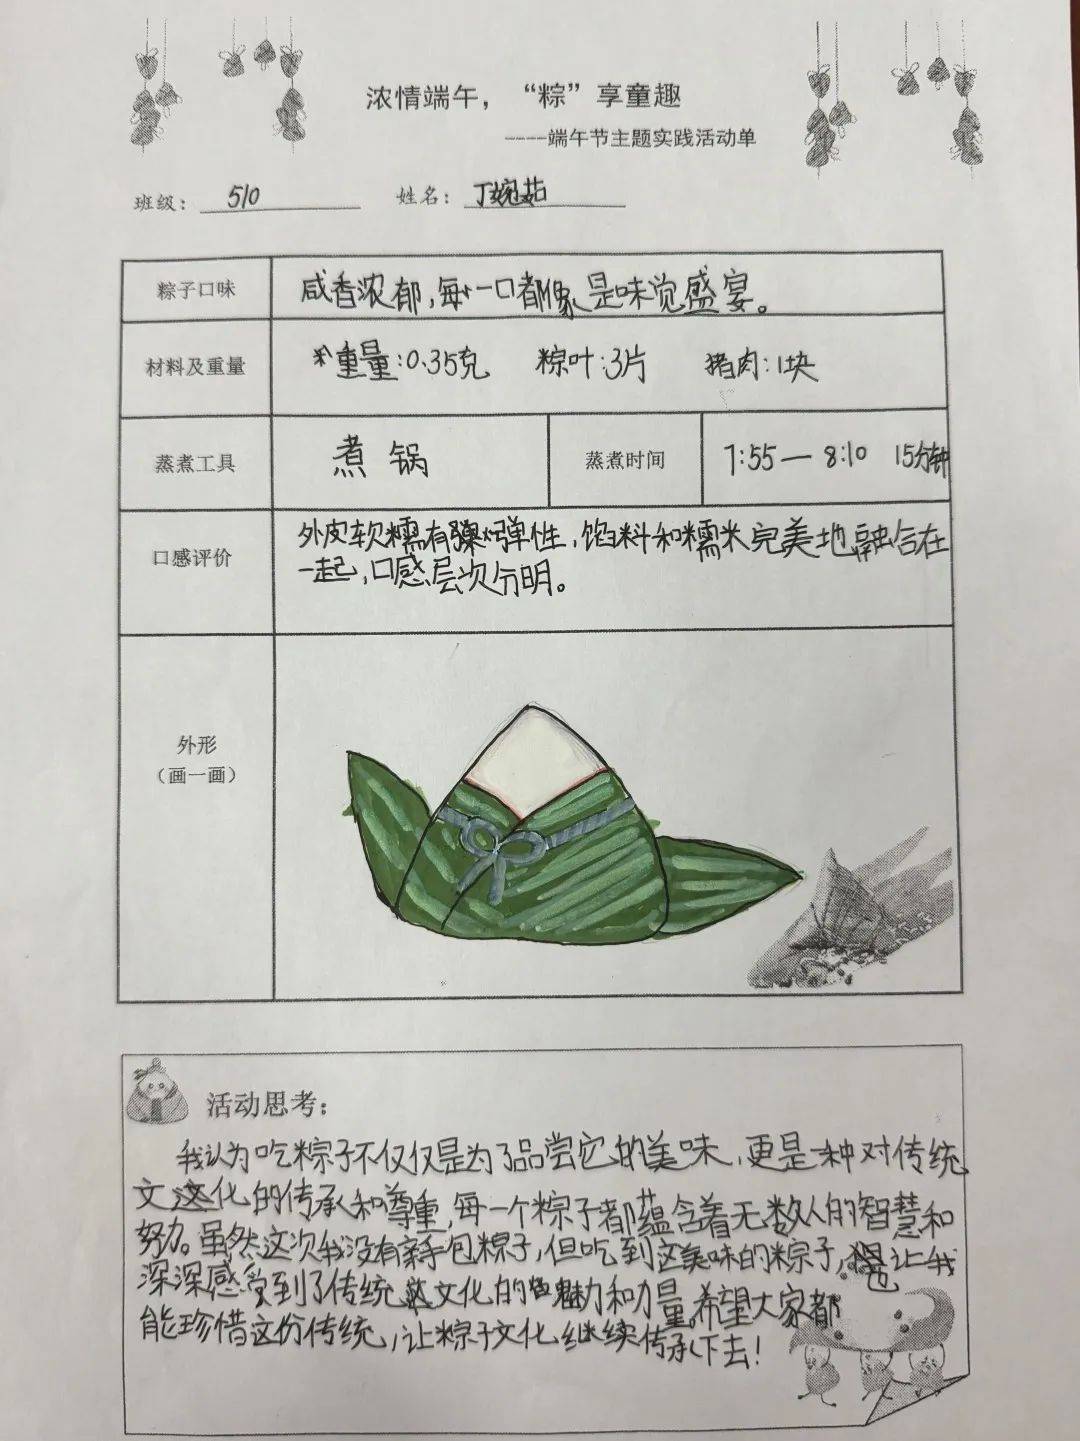 浓情端午，“粽”享童趣
----端午节主题实践活动单
班级： 510 姓名： 丁婉茹
粽子口味 咸香浓郁,每一口都像是味觉盛宴。
材料及重量 重量:0.35克 粽叶:3片 猪肉:1块
蒸煮工具 煮锅 蒸煮时间 7:55—8:10 15分钟
口感评价 外皮软糯有弹性,馅料和糯米完美地融合在
一起,口感层次分明。
外形
（画一画）
活动思考：
我认为吃粽子不仅仅是为了品尝它的美味,更是一种对传统
文化的传承和尊重,每一个粽子都蕴含着无数人的智慧和
努力。虽然这次我没有亲手包粽子,但吃到这美味的粽子,也让我
深深感受到了传统文化的魅力和力量。希望大家都
能珍惜这份传统,让粽子文化继续传承下去!